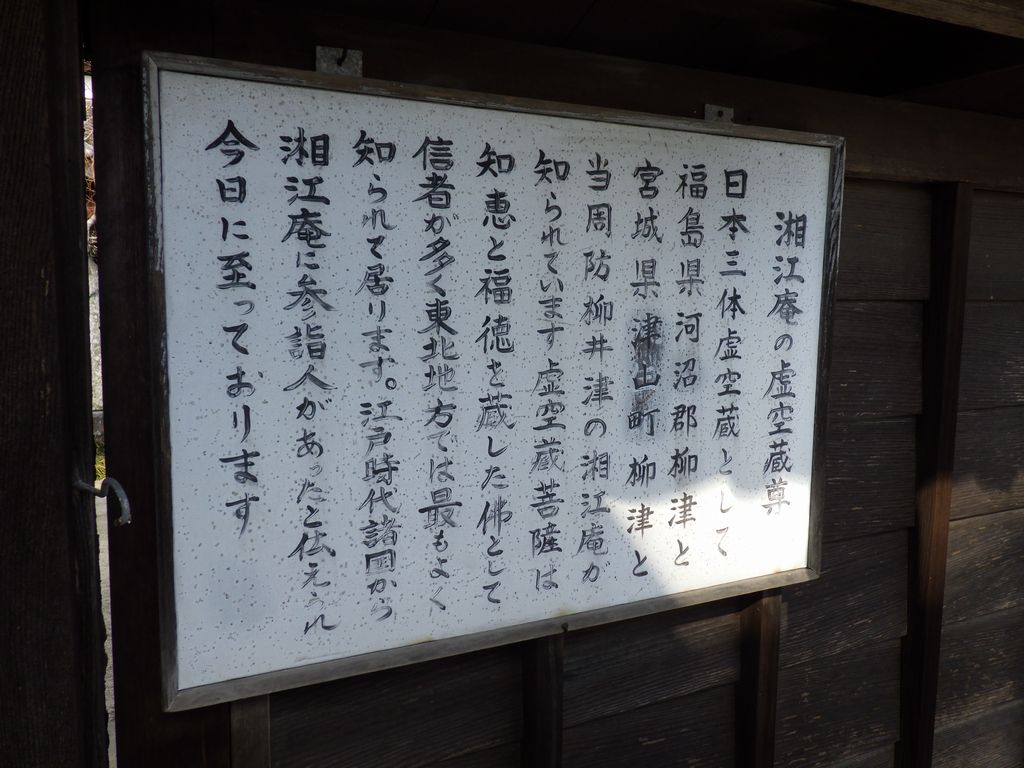 湘江庵の虚空蔵尊
日本三体虚空蔵として
福島県河沼郡柳津と
宮城県津山町柳津と
当周防柳井津の湘江庵が
知られています虚空蔵菩薩は
知恵と福徳を蔵した佛として
信者が多く東北地方では最もよく
知られて居ります。江戸時代諸国から
湘江庵に参詣人があったと伝えられ
今日に至っております